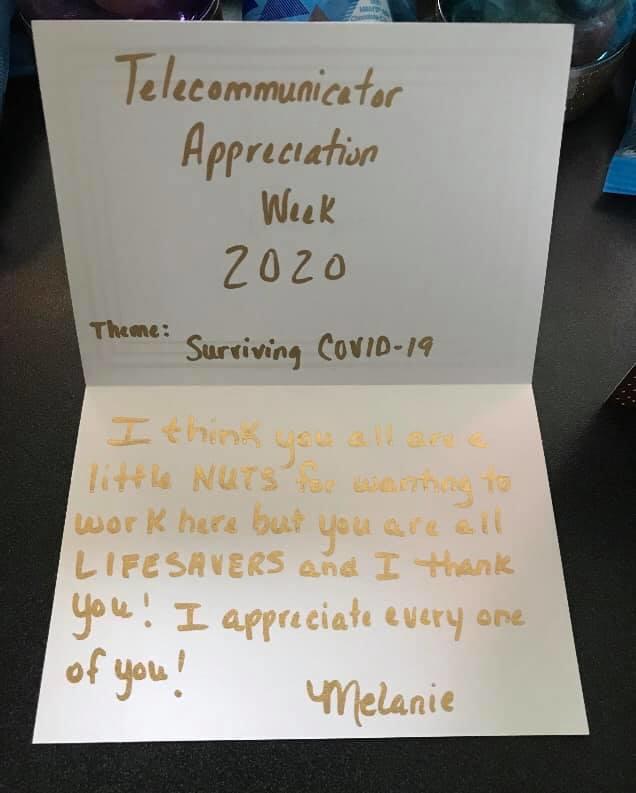 Telecommunicator
Appreciation
Week
2020
Theme:
Surviving COVID-19
I think you all are a
little NUTS for wanting to
work here but you are all
LIFESAVERS and I thank
you! I appreciate every one
of you!
Melanie